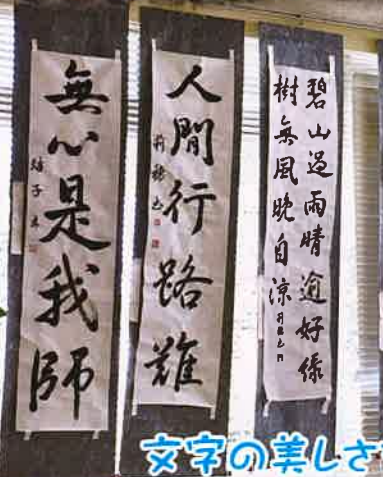 碧山過雨晴逾好緑
樹無風晩自涼
人間行路難
無心是我師
文字の美しさ